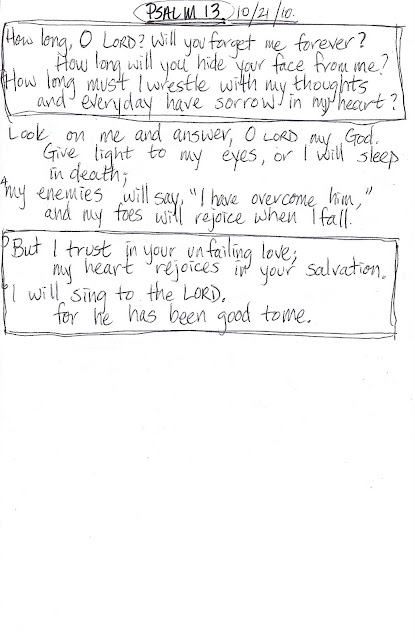 PSALM 13. 10/21/10.
How long, O LORD? Will you forget me forever?
How long will you hide your face from me?
How long must I wrestle with my thoughts
and everyday have sorrow in my heart?
Look on me and answer, O LORD my God.
Give light to my eyes, or I will sleep
in death;
4 my enemies will say, "I have overcome him,"
and my foes will rejoice when I fall.
5 But I trust in your unfailing love;
my heart rejoices in your salvation.
6 I will sing to the LORD,
for he has been good to me.